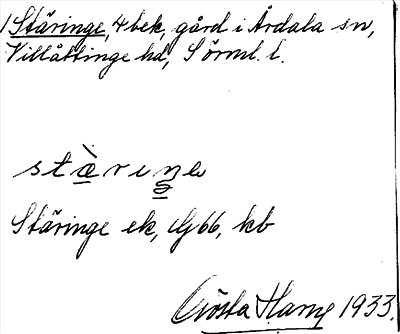 1 Stäringe, 4 bek, gård i Årdala sn,
Villåttinge hd, Sörml. l.
stὰrıŋe
Stäringe ek, Gg 66, kb
Gösta Harry 1933.